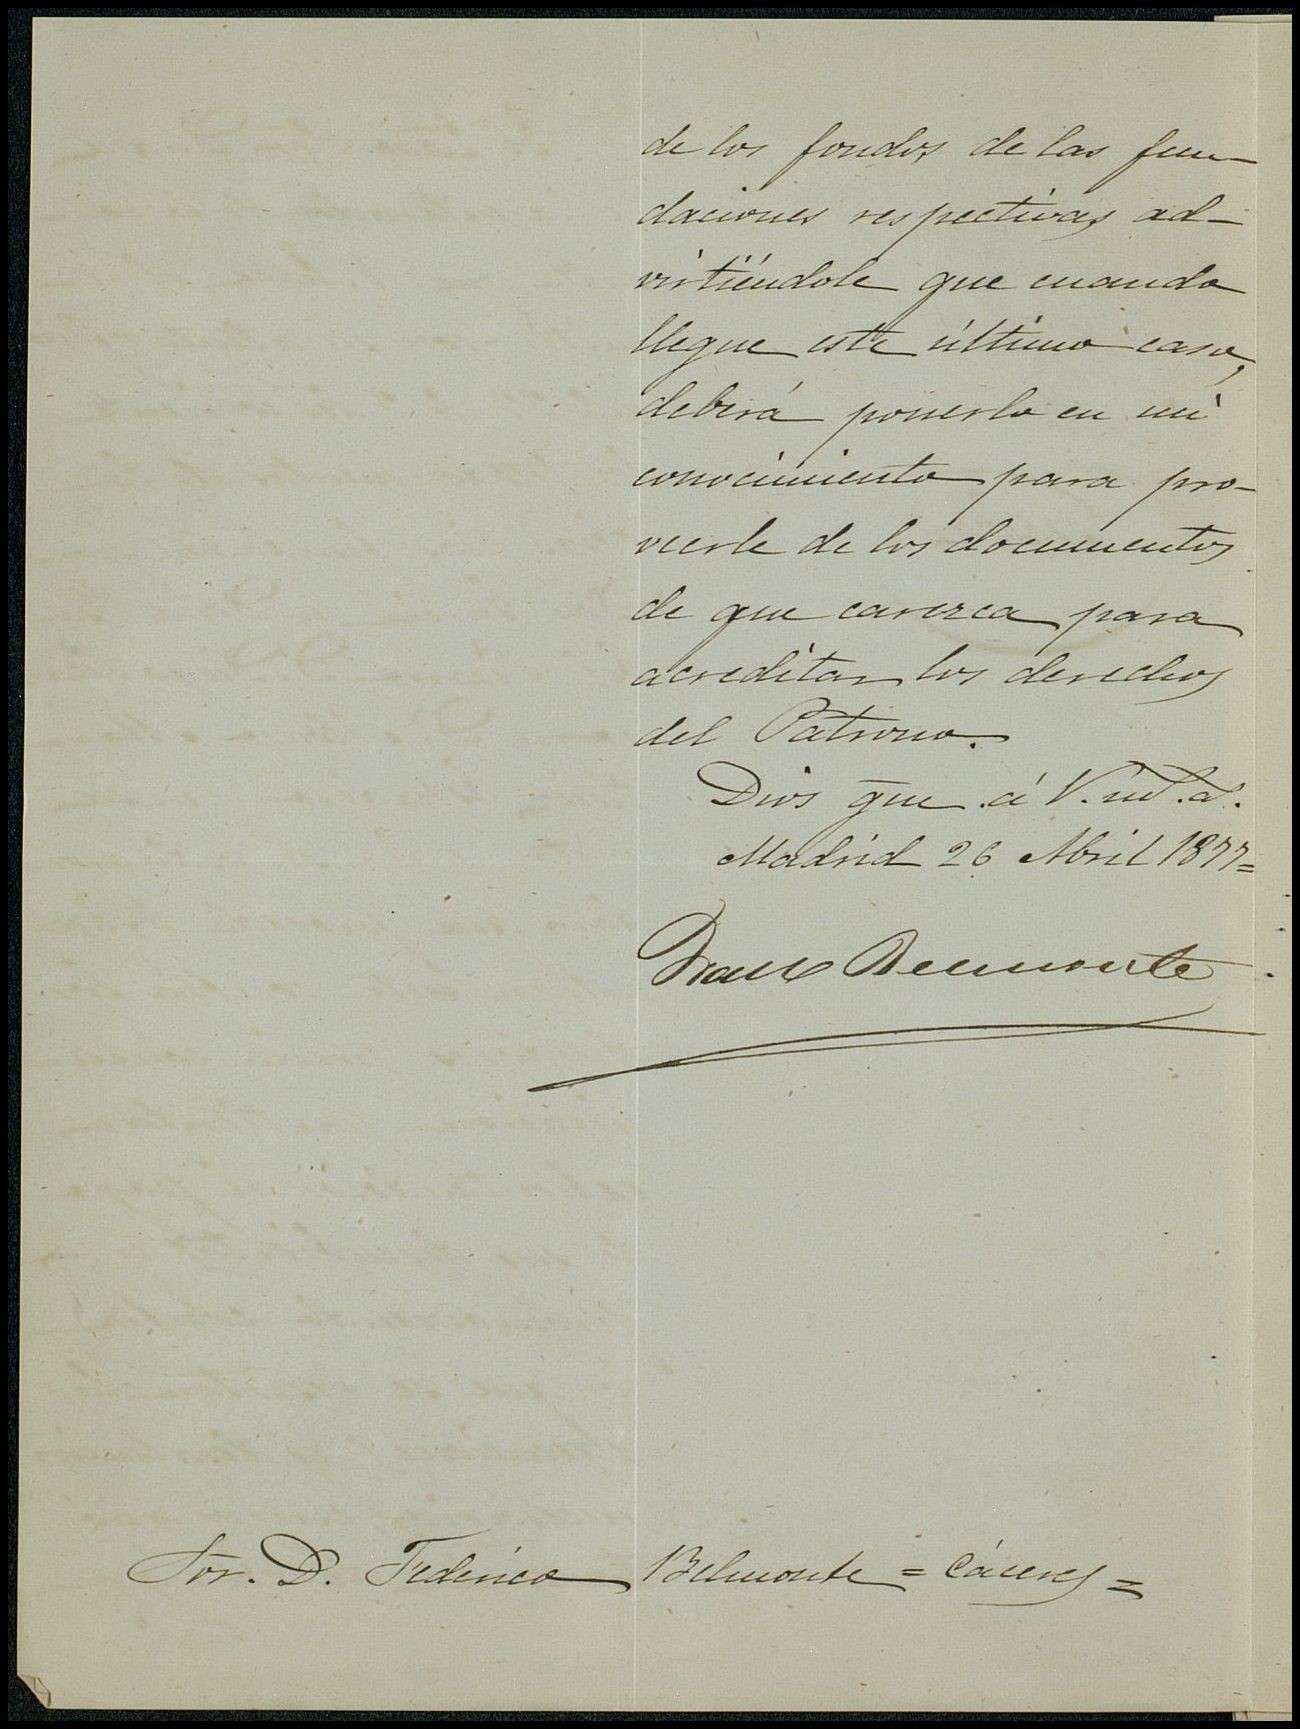 de los fondos de las fun-
daciones respectivas ad-
virtiéndole que cuando
llegue este último caso,
deberá ponerlo en mi
conocimiento para pro-
veerle de los documentos
de que carezca para
acreditar los derechos
del Patrono.
Dios gue á V. m.s a.s
Madrid 26 Abril 1877=
Sor. D. Federico Belmonte = Cáceres =